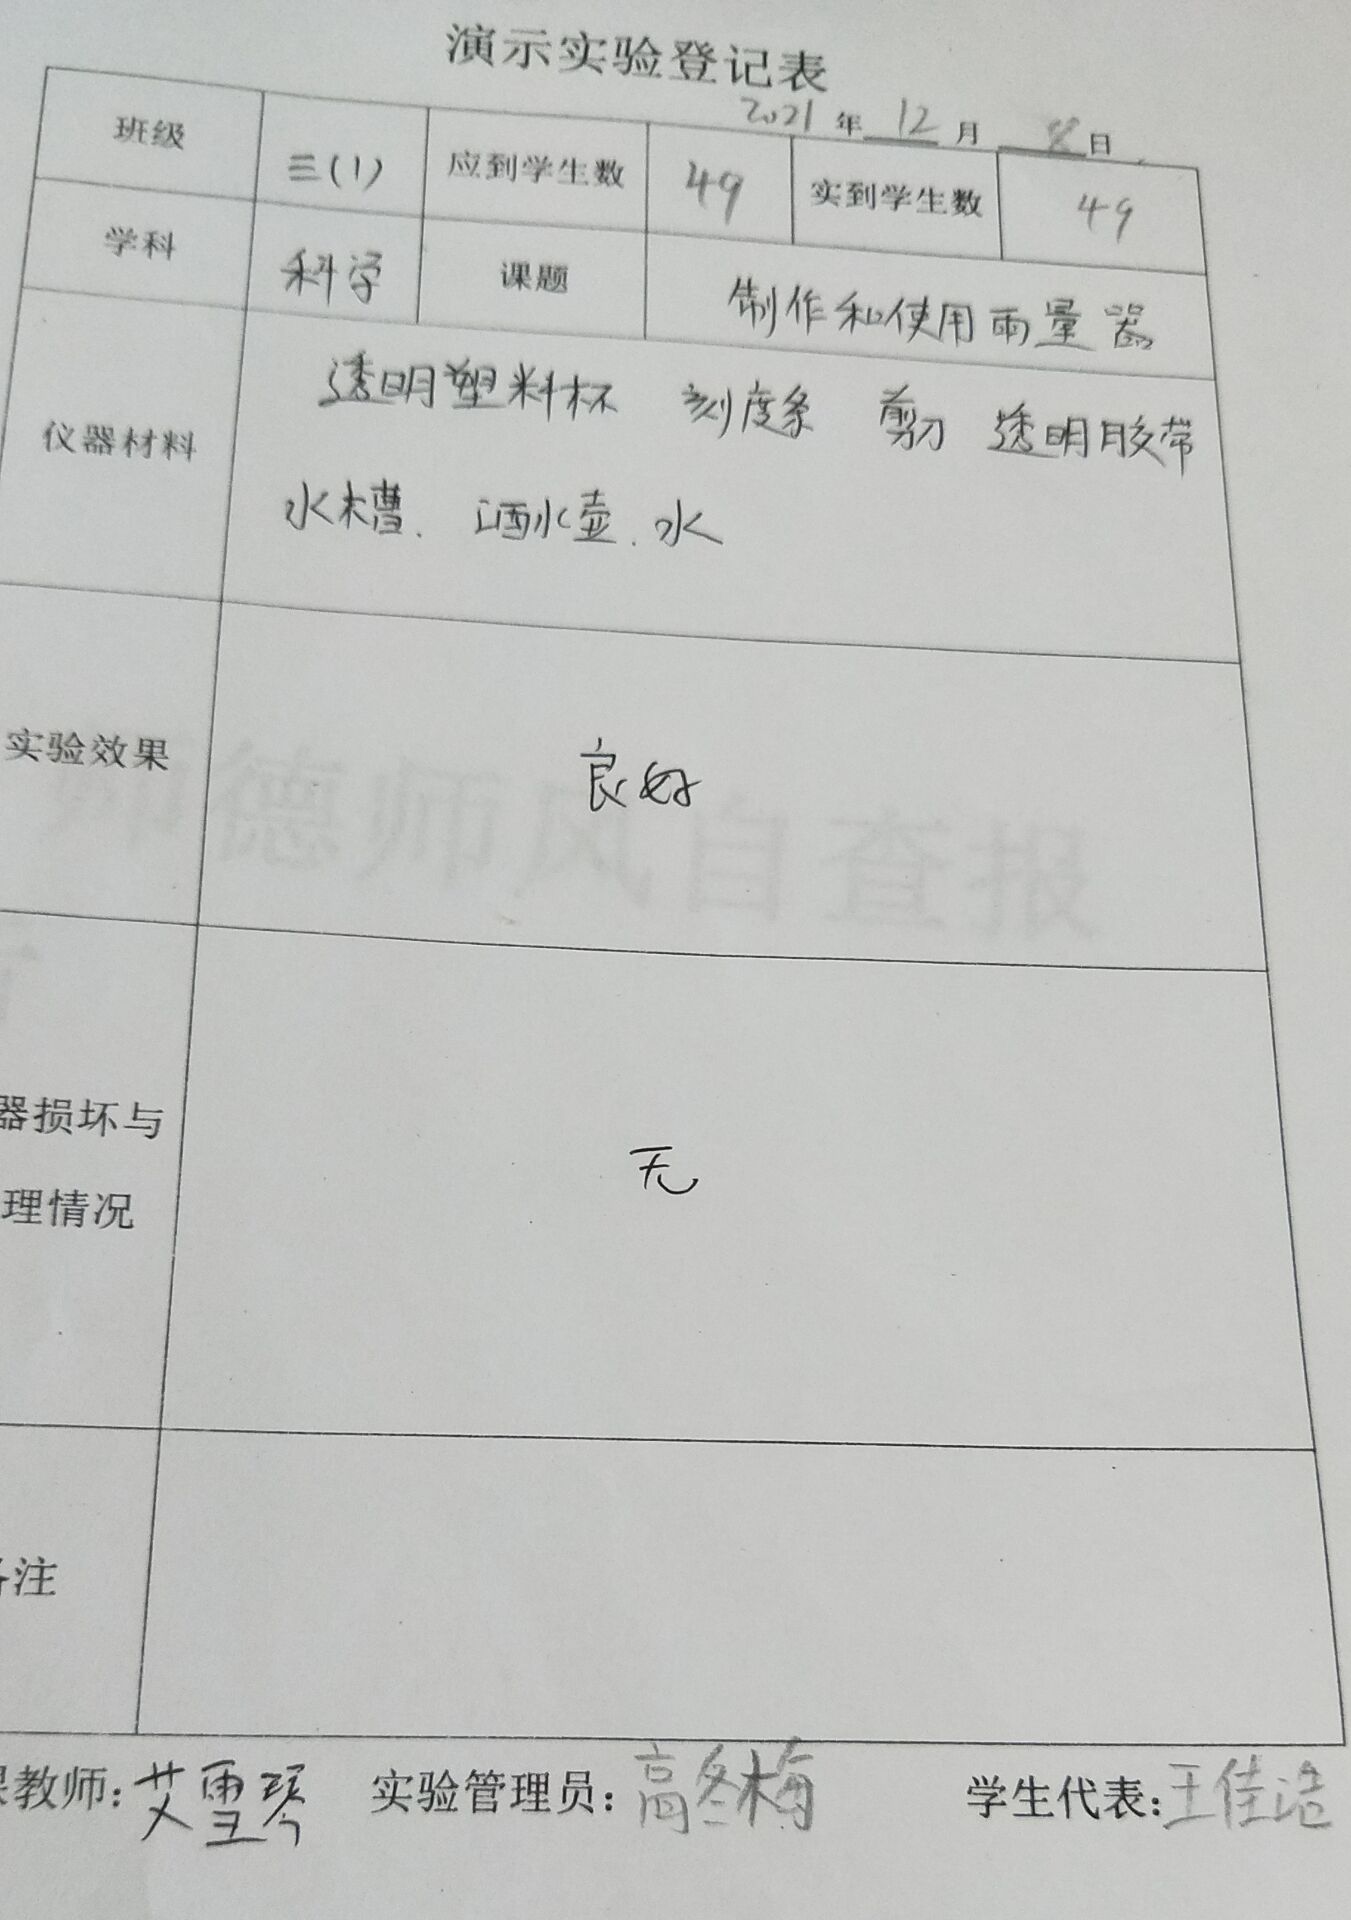 演示实验登记表
2021年12月8日
班级 三(1) 应到学生数 49 实到学生数 49
学科 科学 课题 制作和使用雨量器
仪器材料 透明塑料杯 刻度条 剪刀 透明胶带
水槽. 洒水壶. 水
实验效果 良好
师德师风自查报
器损坏与
理情况
无
注
教师: 艾雪琴 实验管理员: 高冬梅 学生代表: 王佳浩